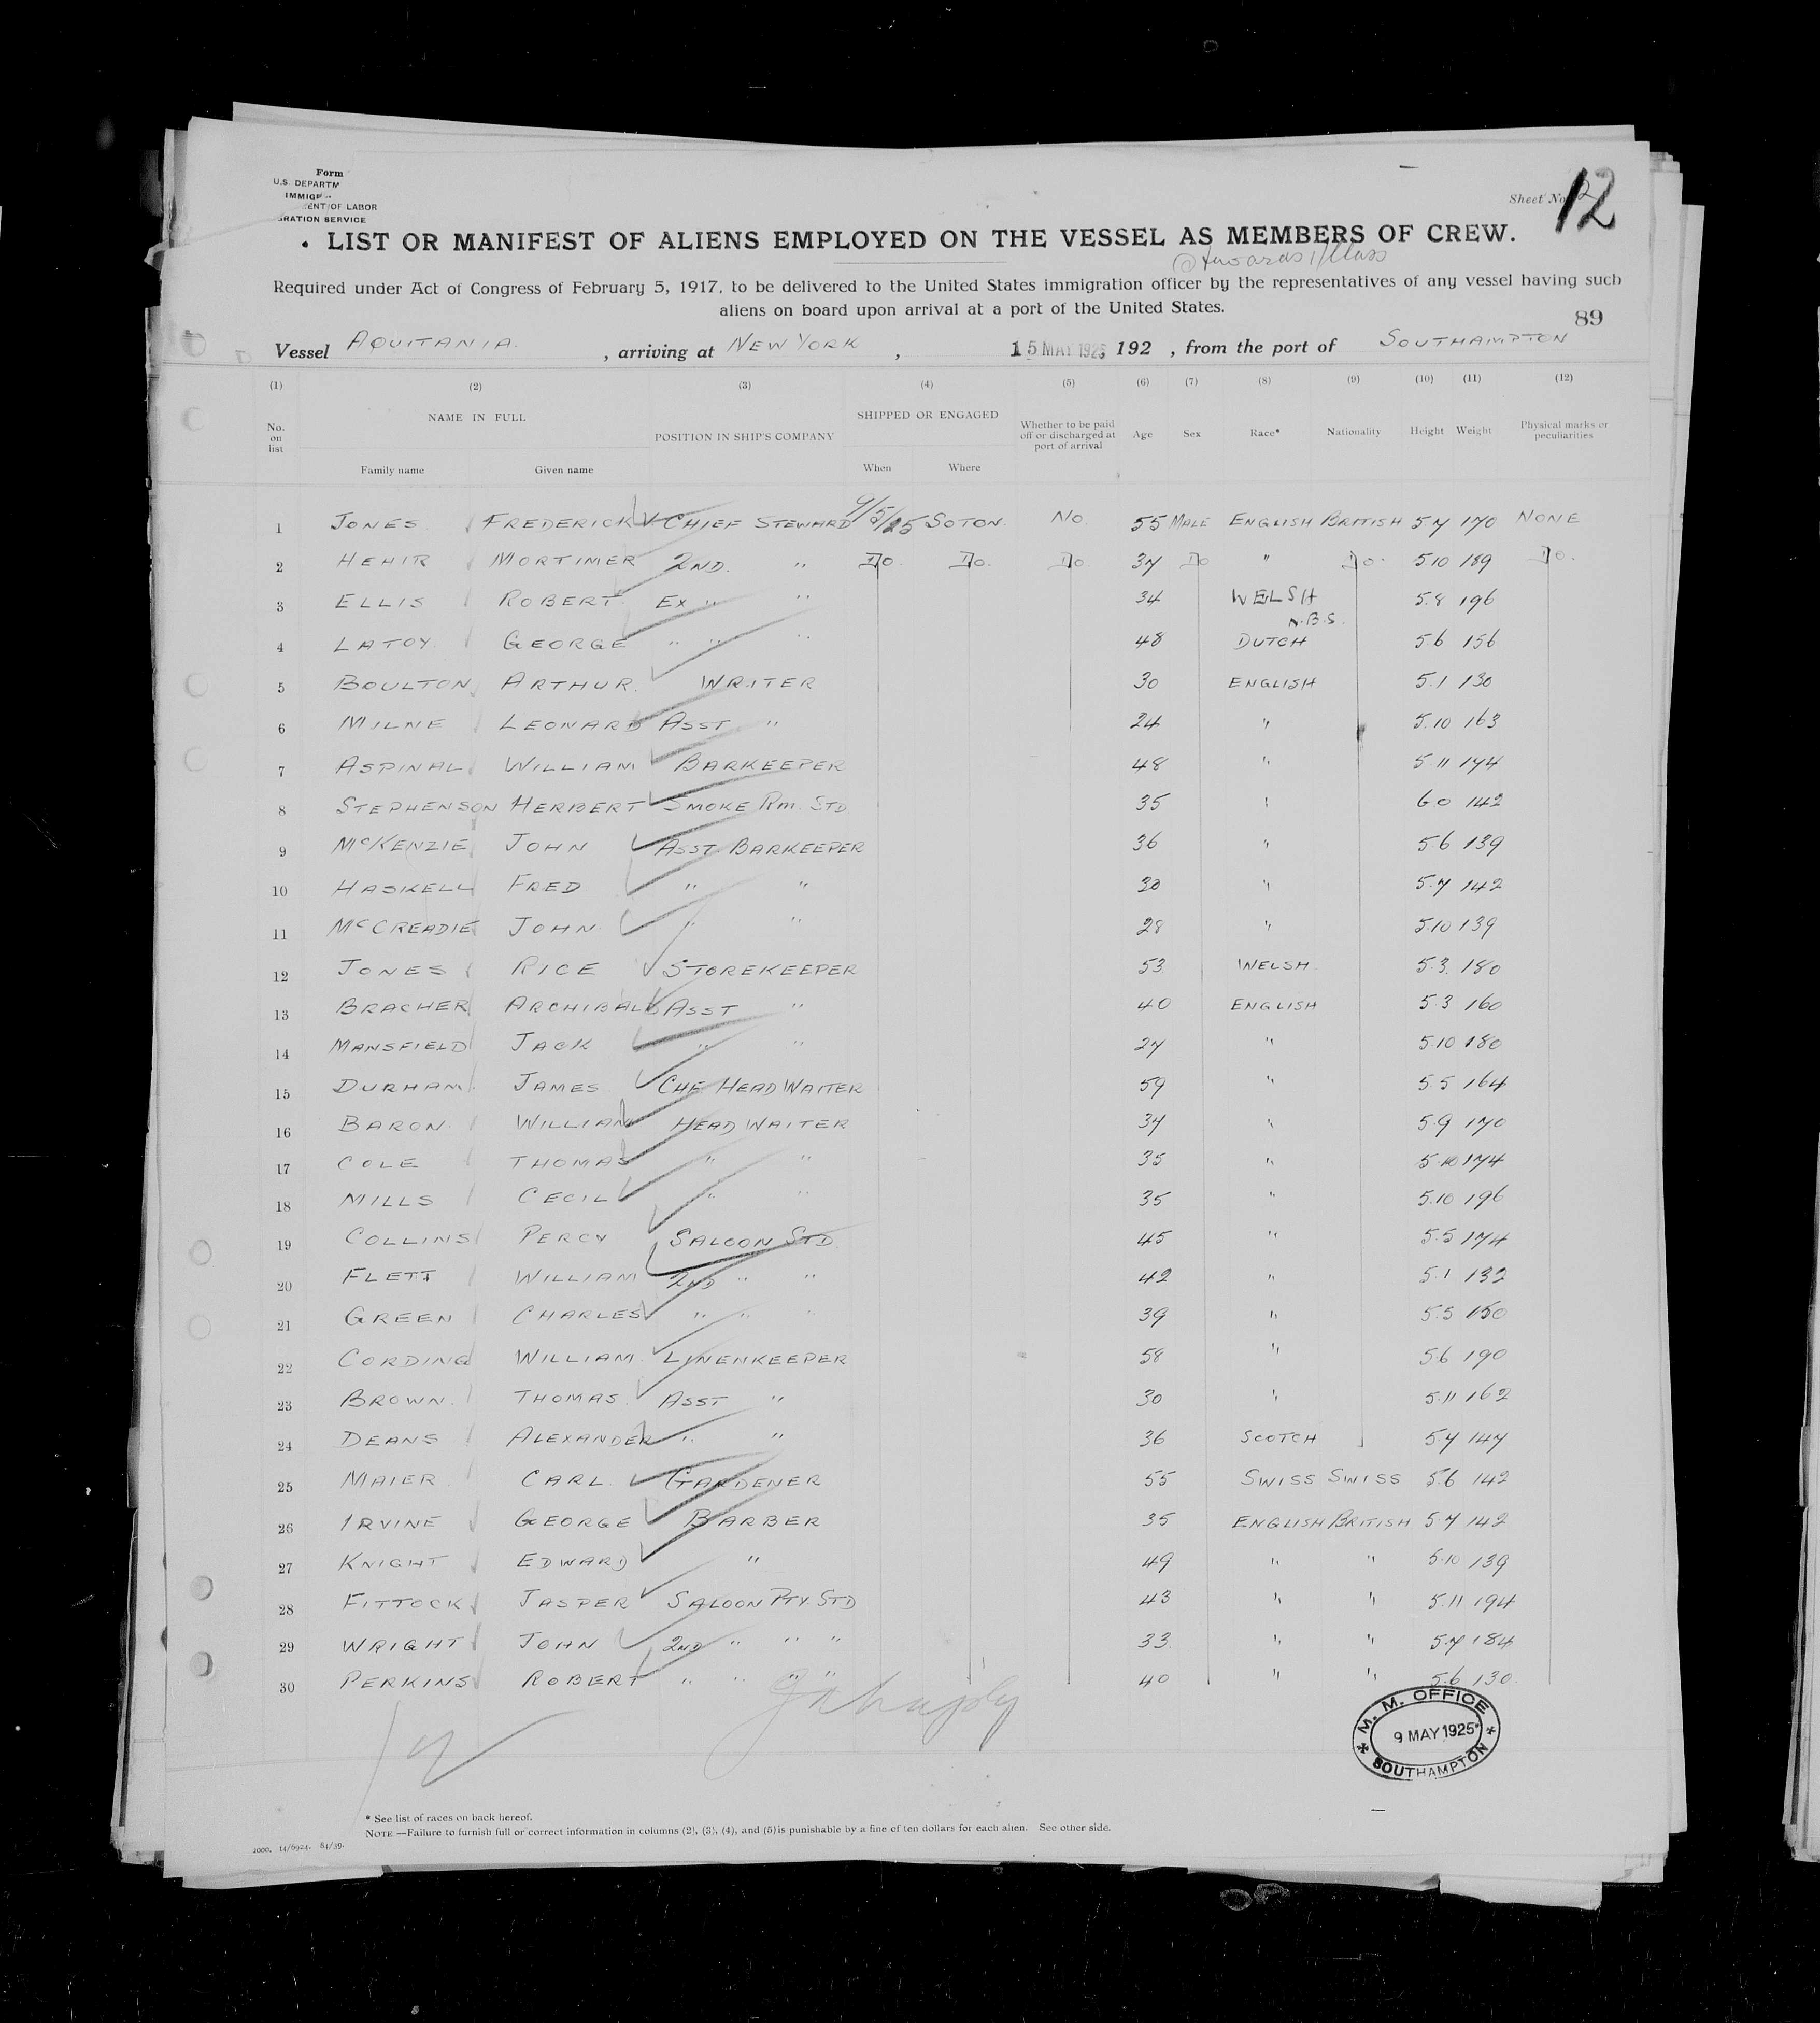 Form
U.S. DEPARTM
IMMIGR
ENT OF LABOR
GRATION SERVICE
Sheet No. 12
LIST OR MANIFEST OF ALIENS EMPLOYED ON THE VESSEL AS MEMBERS OF CREW.
Stewards 1/Class
Required under Act of Congress of February 5, 1917, to be delivered to the United States immigration officer by the representatives of any vessel having such
aliens on board upon arrival at a port of the United States.
89
Vessel AQUITANIA , arriving at NEW YORK , 15 MAY 1925 192 , from the port of SOUTHAMPTON
(1) (2) (3) (4) (5) (6) (7) (8) (9) (10) (11) (12)
No. on list NAME IN FULL POSITION IN SHIP'S COMPANY SHIPPED OR ENGAGED Whether to be paid off or discharged at port of arrival Age Sex Race* Nationality Height Weight Physical marks or peculiarities
Family name Given name When Where
1 JONES FREDERICK CHIEF STEWARD 9/5/25 SOTON. NO 55 MALE ENGLISH BRITISH 5 7 170 NONE
2 HEHIR MORTIMER 2ND. " Do. Do. Do. 37 Do " Do. 5.10 189 Do.
3 ELLIS ROBERT EX " " 34 WELSH 5.8 196
N.B.S.
4 LATOY GEORGE " " " 48 DUTCH 5 6 156
5 BOULTON ARTHUR. WRITER 30 ENGLISH 5.1 130
6 MILNE LEONARD ASST " 24 " 5.10 163
7 ASPINAL WILLIAM BARKEEPER 48 " 5.11 174
8 STEPHENSON HERBERT SMOKE RM. STD 35 " 6 0 142
9 McKENZIE JOHN ASST BARKEEPER 36 " 5.6 139
10 HASKELL FRED " " 30 " 5.7 142
11 McCREADIE JOHN " " 28 " 5.10 139
12 JONES RICE STOREKEEPER 53 WELSH 5.3. 180
13 BRACHER ARCHIBALD ASST " 40 ENGLISH 5.3 160
14 MANSFIELD JACK " " 27 " 5.10 180
15 DURHAM JAMES CHF HEAD WAITER 59 " 5 5 164
16 BARON WILLIAM HEAD WAITER 34 " 5.9 170
17 COLE THOMAS " " 35 " 5.10 174
18 MILLS CECIL " " 35 " 5.10 196
19 COLLINS PERCY SALOON STD 45 " 5.5 174
20 FLETT WILLIAM 2ND " " 42 " 5.1 132
21 GREEN CHARLES " " " 39 " 5.5 150
22 CORDING WILLIAM LINENKEEPER 58 " 5.6 190
23 BROWN. THOMAS. ASST " 30 " 5.11 162
24 DEANS ALEXANDER " " 36 SCOTCH 5.7 147
25 MAIER CARL. GARDENER 55 SWISS SWISS 5.6 142
26 IRVINE GEORGE BARBER 35 ENGLISH BRITISH 5 7 142
27 KNIGHT EDWARD " 49 " " 5.10 139
28 FITTOCK JASPER SALOON PTY. STD 43 " " 5.11 194
29 WRIGHT JOHN 2ND " " " 33 " " 5.7 184
30 PERKINS ROBERT " " " " 40 " " 5.6 130
M. M. OFFICE
9 MAY 1925
SOUTHAMPTON
* See list of races on back hereof.
NOTE —Failure to furnish full or correct information in columns (2), (3), (4), and (5) is punishable by a fine of ten dollars for each alien. See other side.
2000. 14/6924. 84/39.